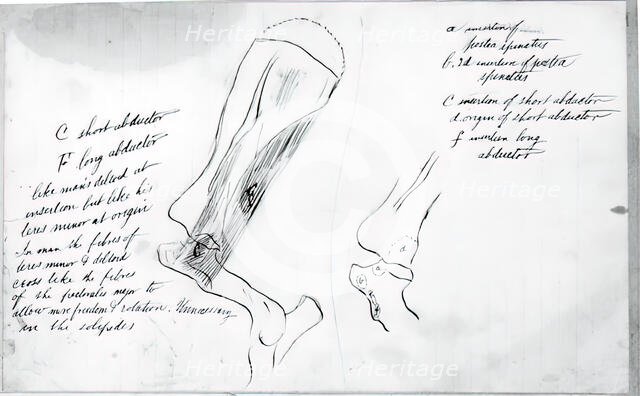 C short abductor
F long abductor
like man's deltoid at
insertion but like his
teres minor at origin
In man the fibres of
teres minor & deltoid
cross like the fibres
of the pectoralis major to
allow more freedom & rotation. Unnecessary
in the solipedes
a insertion of
postea spinatus
b. 2d insertion of postea
spinatus
C insertion of short abductor
d. origin of short abductor
f insertion long
abductor
C
d
a
b
Heritage
Heritage
Heritage
Heritage
Heritage
Heritage
Heritage
Heritage